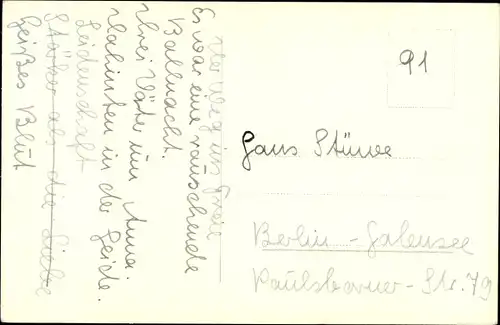 Der Weg ins Freie
Es war eine rauschende
Ballnacht.
Drei Väter um Anna.
Dahinten in der Heide.
Leidenschaft
Stärker als die Liebe
Heißes Blut
91
Hans Stüwe
Berlin-Halensee
Paulsborner-Str. 79